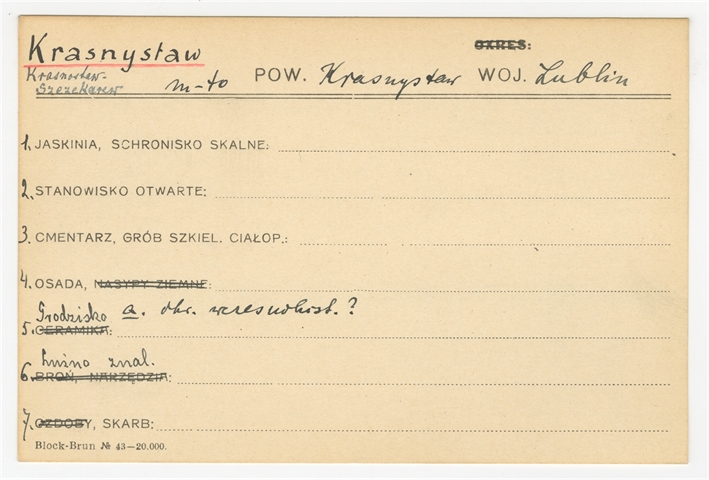 Krasnystaw
OKRES:
Krasnostaw-
Szczekarew m-to POW. Krasnystaw WOJ. Lublin
1. JASKINIA, SCHRONISKO SKALNE:
2. STANOWISKO OTWARTE:
3. CMENTARZ, GRÓB SZKIEL. CIAŁOP.:
4. OSADA, NASYPY ZIEMNE:
Grodzisko a. okr. wczesnohist.?
5. CERAMIKA:
Luźno znal.
6. BROŃ, NARZĘDZIA:
7. OZDOBY, SKARB:
Block-Brun № 43—20.000.